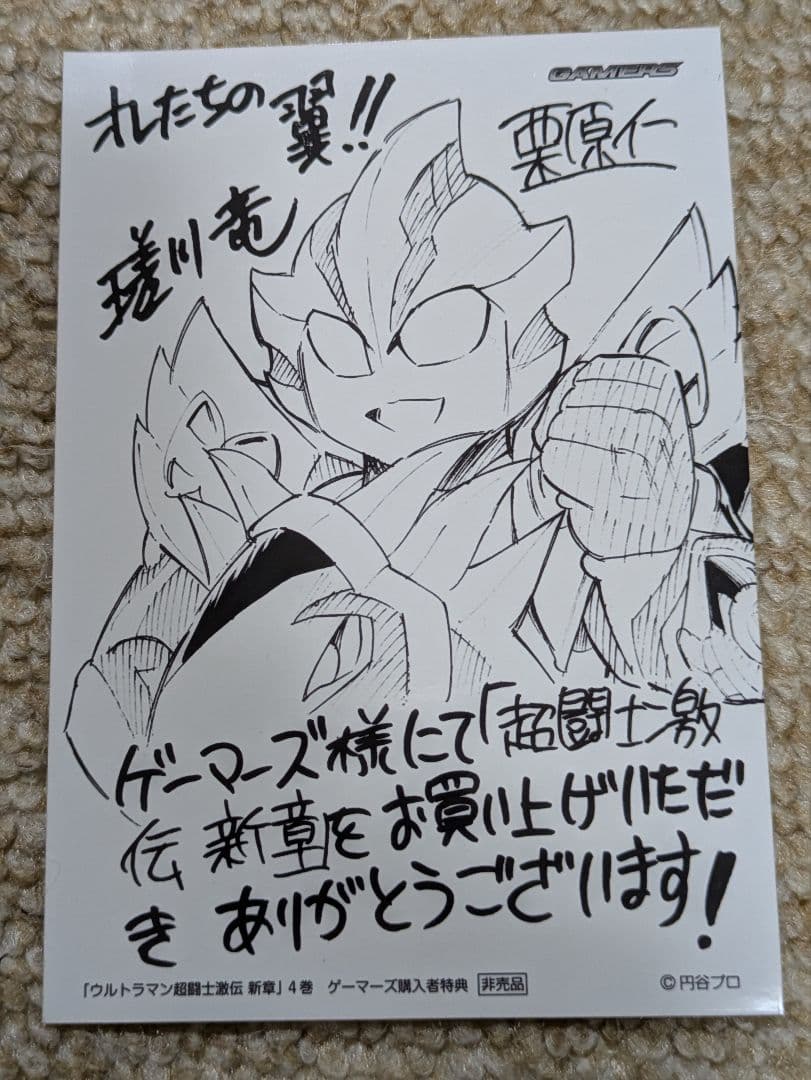 GAMERS
オレたちの翼!!
栗原仁
瑳川竜
ゲーマーズ様にて「超闘士激
伝 新章」をお買い上げいただ
き ありがとうございます!
「ウルトラマン超闘士激伝 新章」4巻 ゲーマーズ購入者特典 非売品
©円谷プロ